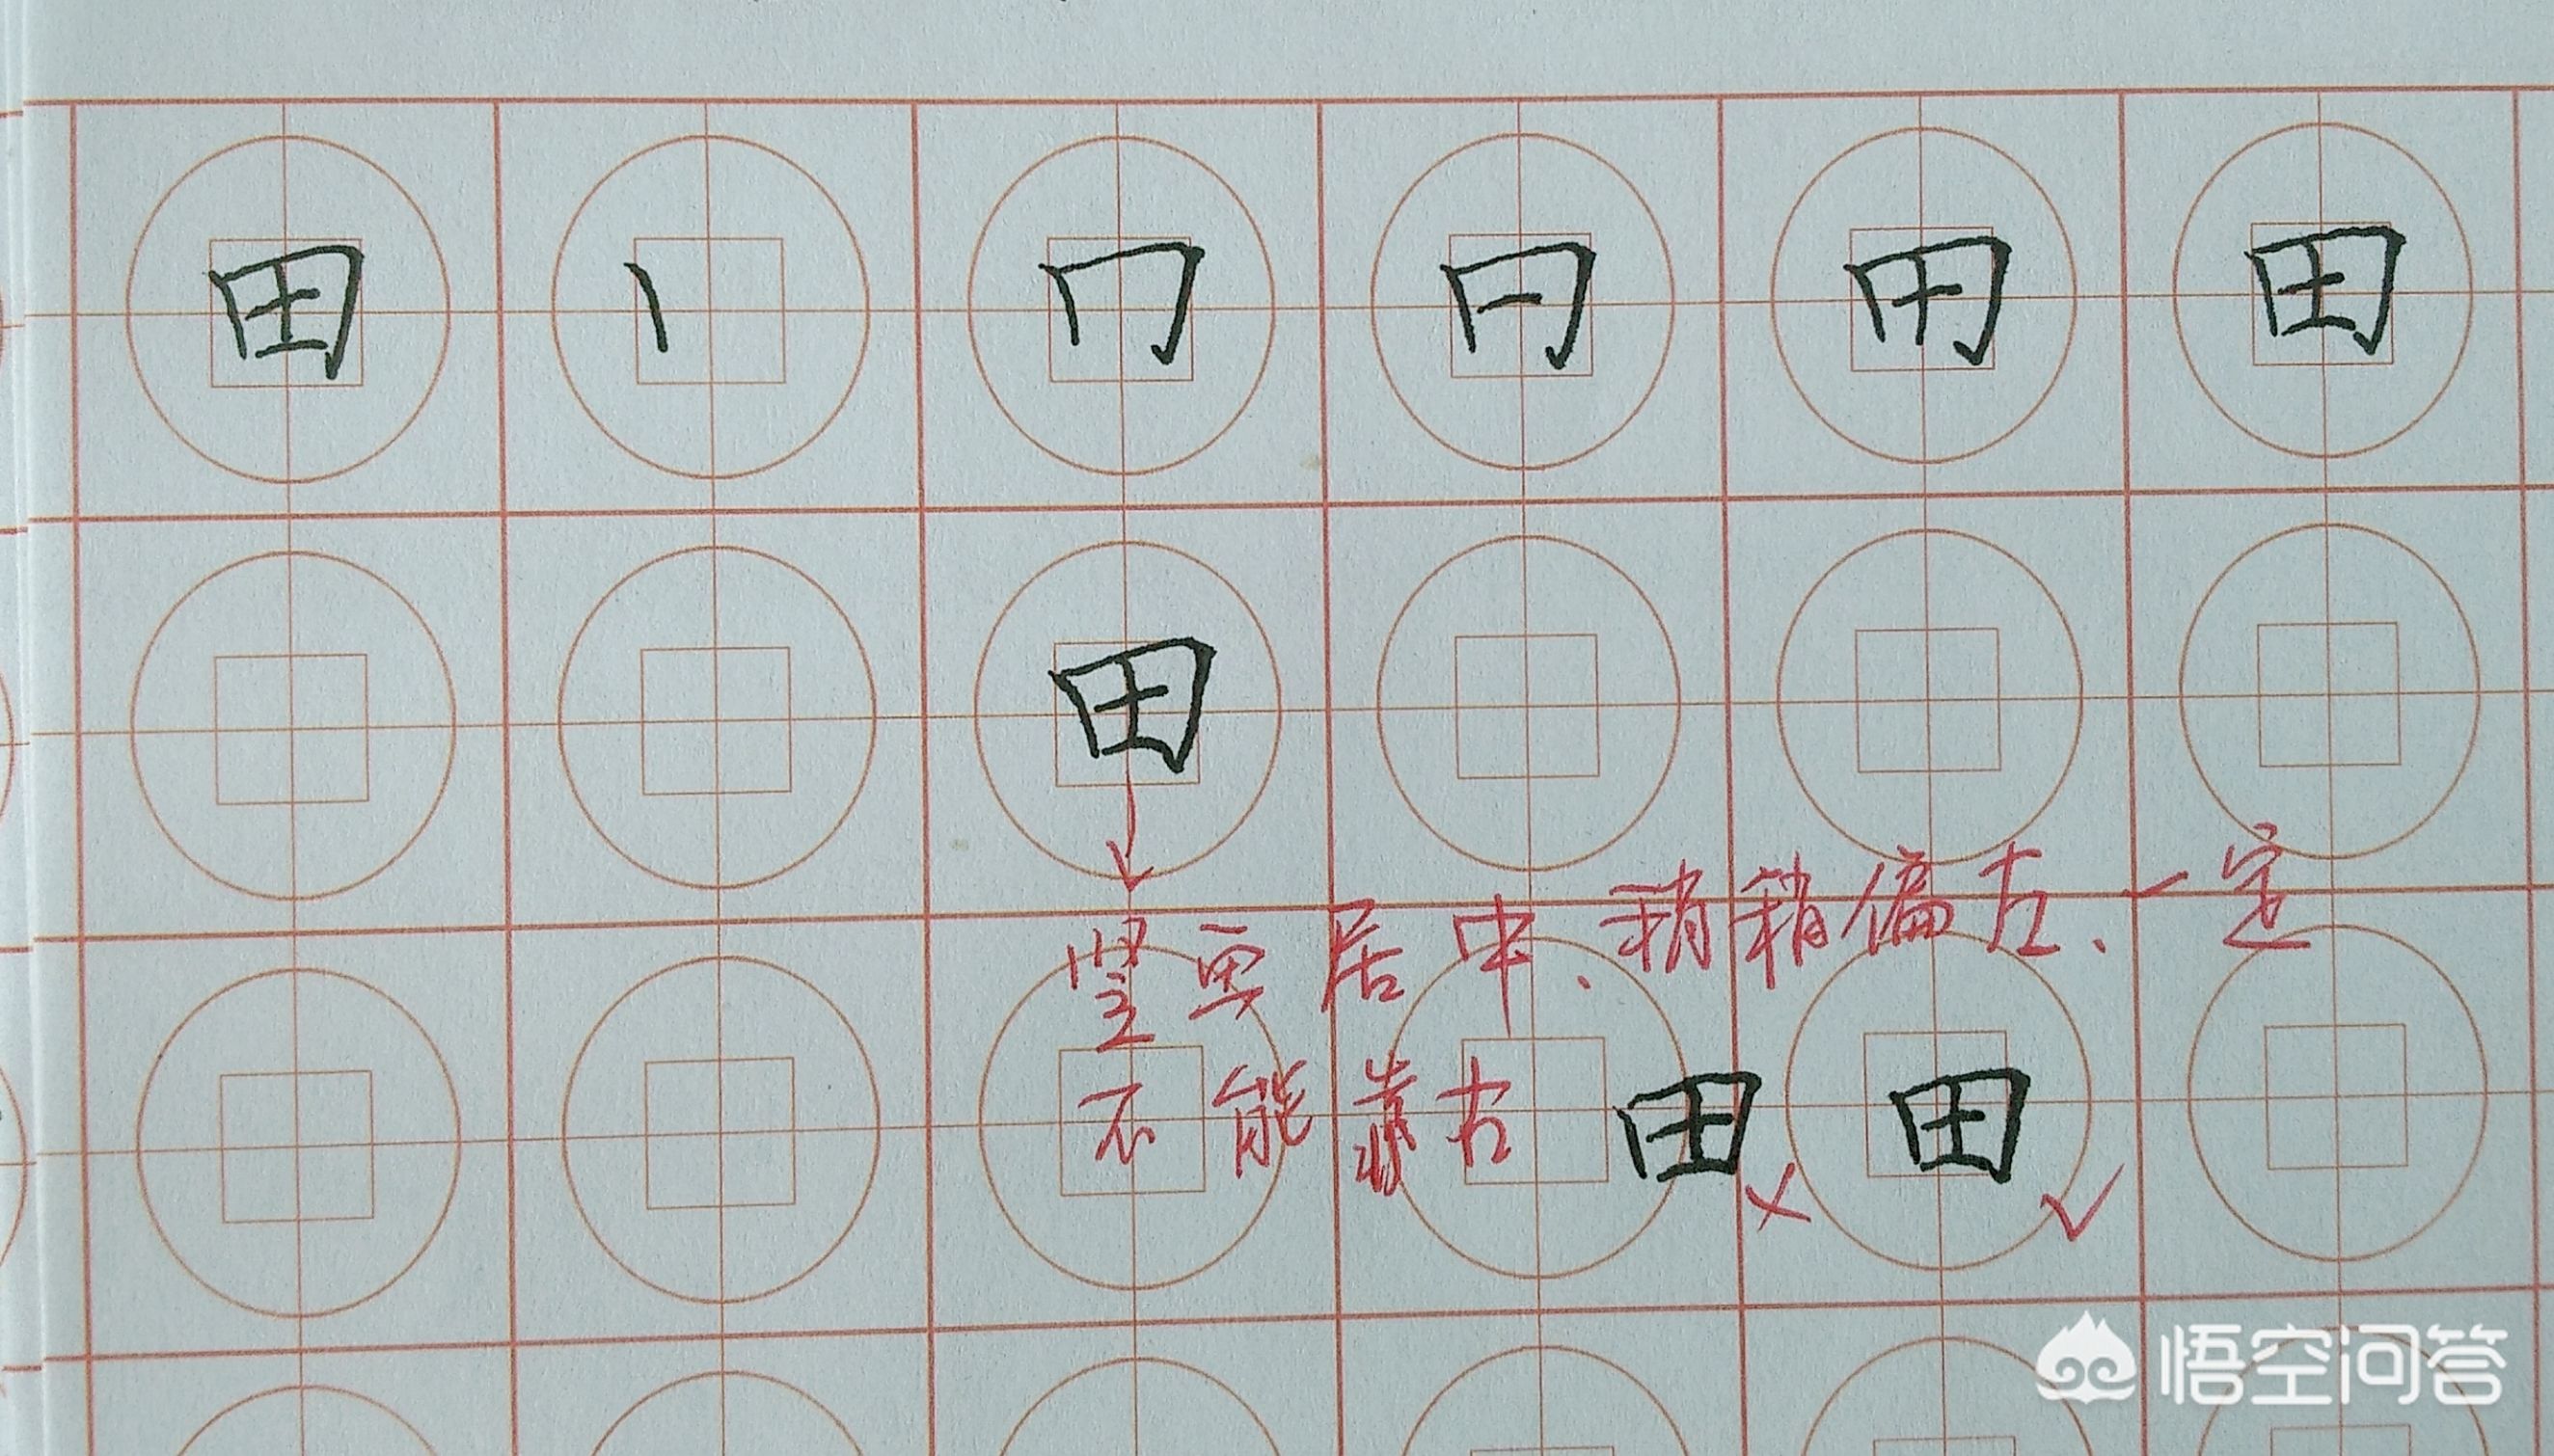 田 丨 冂 日 用 田
田
竖要居中、稍稍偏左、一定
不能靠右 田 × 田 ✓
悟空问答